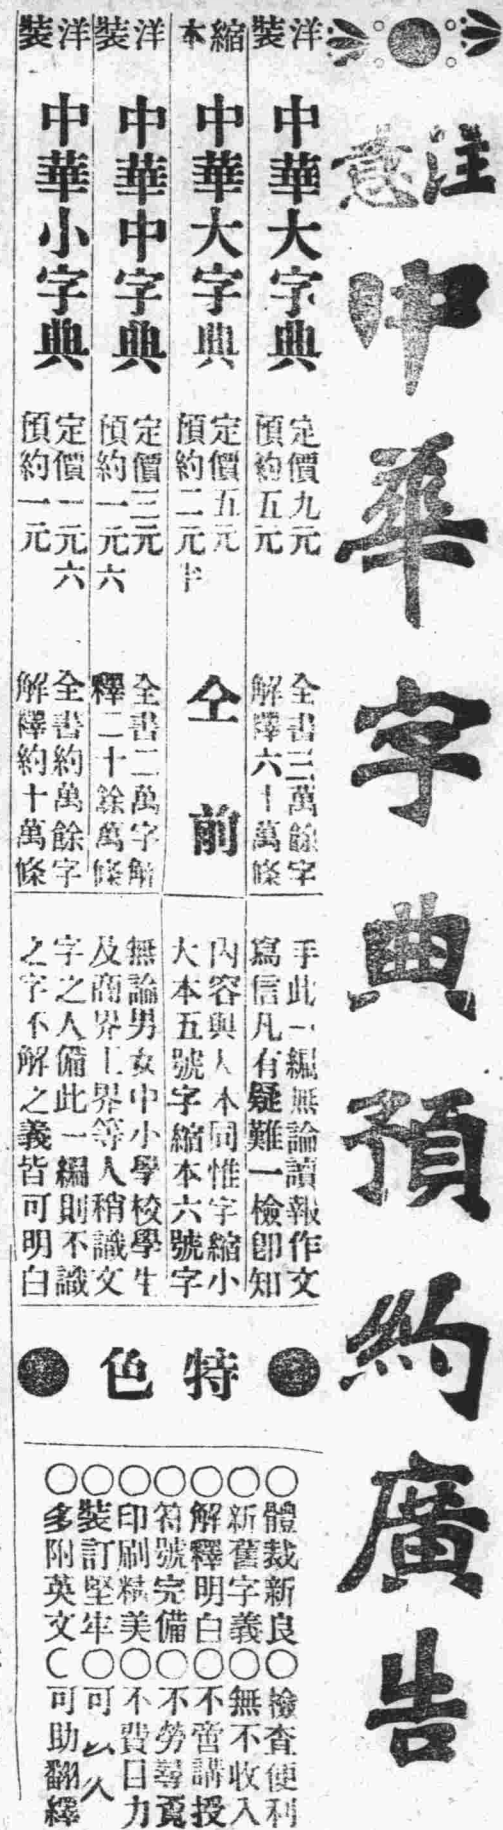 注意
中華字典預約廣告
洋裝
中華大字典
定價九元
預約五元
全書三萬餘字
解釋六十萬條
手此一編無論讀報作文
寫信凡有疑難一檢卽知
縮本
中華大字典
定價五元
預約二元半
仝前
內容與大本同惟字縮小
大本五號字縮本六號字
洋裝
中華中字典
定價三元
預約一元六
全書二萬字解
釋二十餘萬條
無論男女中小學校學生
及商界工界等人稍識文
洋裝
中華小字典
定價一元六
預約一元
全書約萬餘字
解釋約十萬條
字之人備此一編則不識
之字不解之義皆可明白
特色
○體裁新良○檢査便利
○新舊字義○無不收入
○解釋明白○不啻講授
○符號完備○不勞尋覓
○印刷精美○不費目力
○裝訂堅牢○可以久
○多附英文○可助翻繹